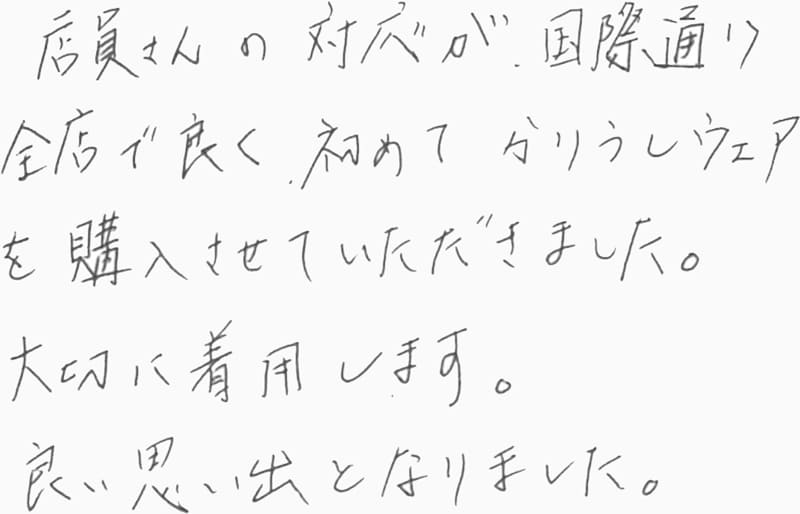 店員さんの対応が国際通り
全店で良く、初めてかりうしウェア
を購入させていただきました。
大切に着用します。
良い思い出となりました。